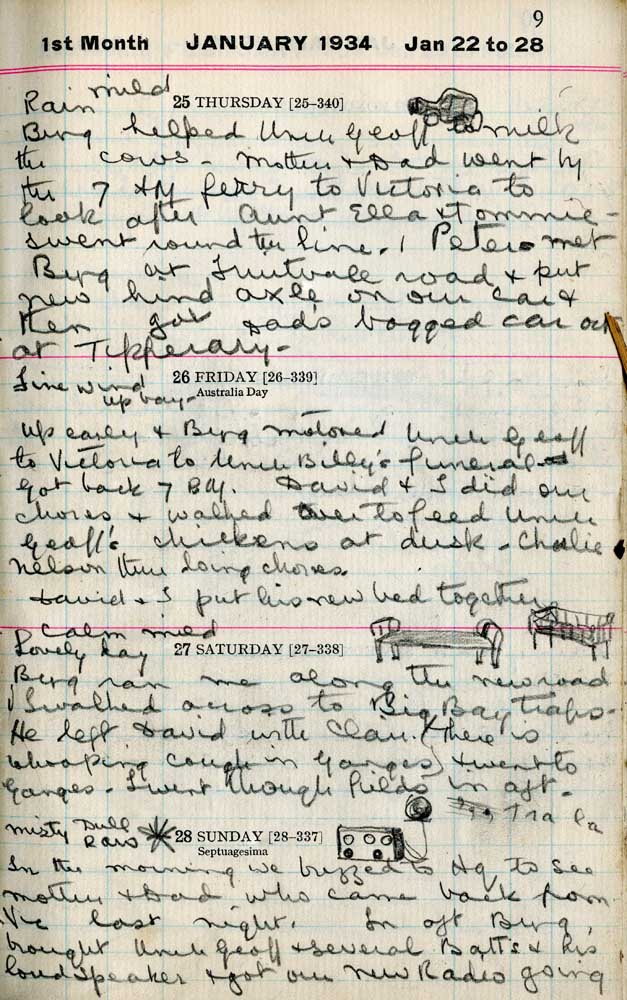 9
1st Month JANUARY 1934 Jan 22 to 28
Rain mild
25 THURSDAY [25-340]
Berg helped Uncle Geoff to milk
the cows - Mother & Dad went by
the 7 AM ferry to Victoria to
look after Aunt Ella & Tommie -
I went round the line. Peters met
Berg at Fruitvale road & put
new hind axle on our car &
then got Dad's bogged car out
at Tipperary -
Fine wind
up bay -
26 FRIDAY [26-339]
Australia Day
Up early & Berg motored Uncle Geoff
to Victoria to Uncle Billy's funeral -
got back 7 Bay. David & I did our
chores & walked over to feed Uncle
Geoff's chickens at dusk - Charlie
Nelson there doing chores.
David & I put his new bed together
Calm mild
Lovely day
27 SATURDAY [27-338]
Berg ran me along the new road
I walked across to Big Bay traps -
He left David with Clau. (There is
whooping cough in Ganges) & went to
Ganges - I went through fields in aft -
Tra la
Misty Dull
Rain
28 SUNDAY [28-337]
Septuagesima
In the morning we buzzed to Hq to see
mother & Dad who came back from
Vic last night. In aft Berg
brought Uncle Geoff & several Batts & his
loud speaker & got our new Radio going